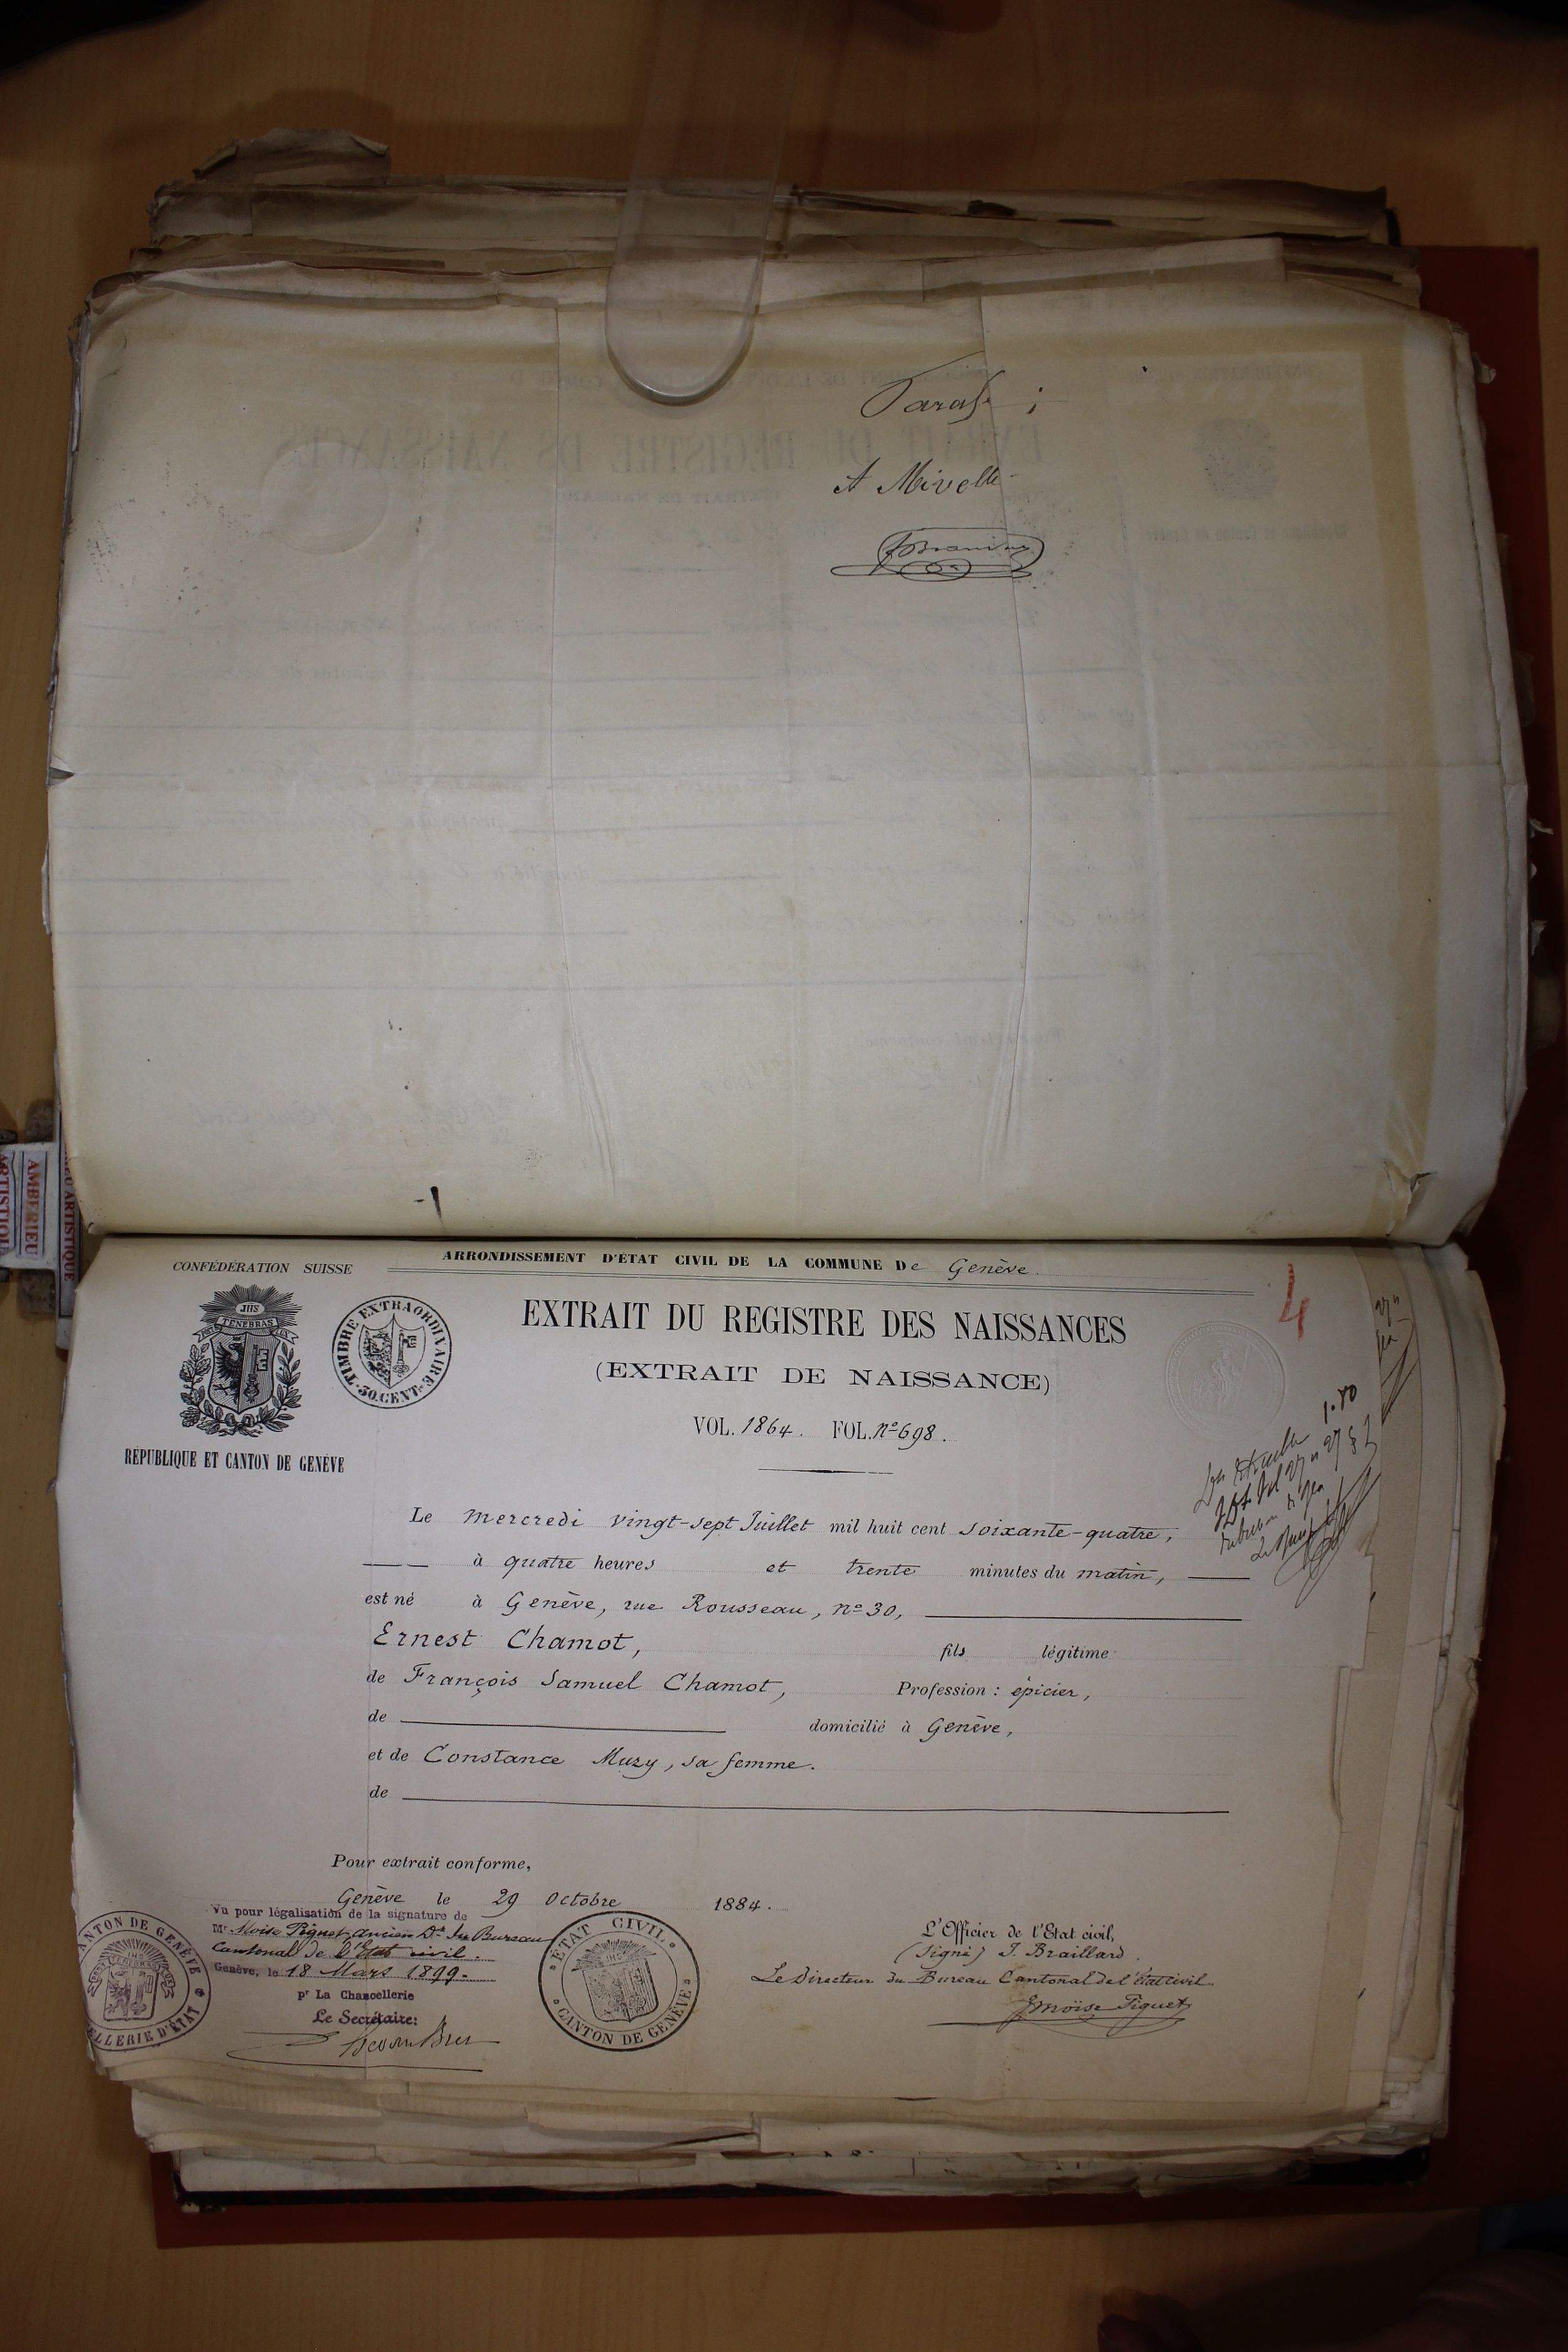 Paraf
A Mivelle
AMBERIEU
ARTISTIQUE
ARRONDISSEMENT D'ÉTAT CIVIL DE LA COMMUNE De Genève.
CONFÉDÉRATION SUISSE
4
JHS
POST TENEBRAS LUX
TIMBRE EXTRAORDINAIRE
50 CENT.
EXTRAIT DU REGISTRE DES NAISSANCES
(EXTRAIT DE NAISSANCE)
RÉPUBLIQUE ET CANTON DE GENÈVE
VOL. 1864. FOL. Nº 698.
Le mercredi vingt-sept Juillet mil huit cent soixante-quatre,
à quatre heures et trente minutes du matin,
est né à Genève, rue Rousseau, nº 30,
Ernest Chamot, fils légitime
de François Samuel Chamot, Profession : épicier,
de domicilié à Genève,
et de Constance Muzy, sa femme.
de
Pour extrait conforme,
Genève le 29 Octobre 1884.
Vu pour légalisation de la signature de
Mr Moïse Piguet, ancien Dr du Bureau
Cantonal de l'Etat civil.
Genève, le 18 Mars 1899.
pr La Chancellerie
Le Secrétaire:
CANTON DE GENÈVE
ÉTAT CIVIL
CANTON DE GENÈVE
L'Officier de l'Etat civil,
(Signé) J. Braillard.
Le Directeur du Bureau Cantonal de l'état civil
Moïse Piguet